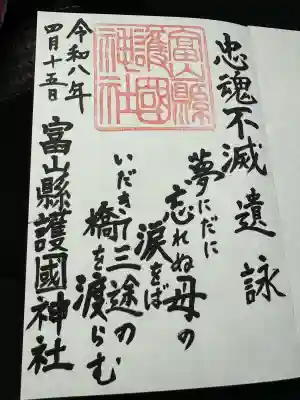 忠魂不滅 遺詠
夢にだに
忘れぬ母の
涙をば
いだきて三途の
橋を渡らむ
富山縣護國神社
令和八年
四月十五日
富山縣護國神社